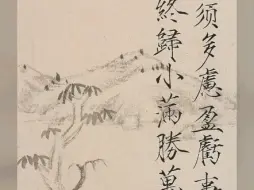 須多慮盈虧事
終歸小滿勝萬